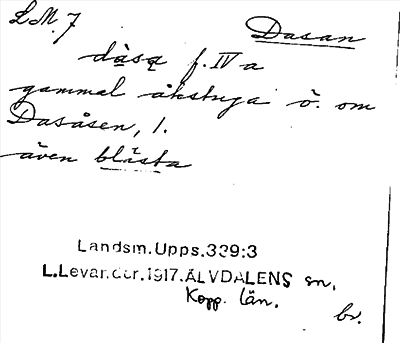 L.M. 7 Dasan
dàsą f. IV a
gammal åkstuga ö. om
Dasåsen, 1.
även blåsta
Landsm. Upps. 339:3
L. Levander. 1917. ÄLVDALENS sn.
Kopp. län.
bv.